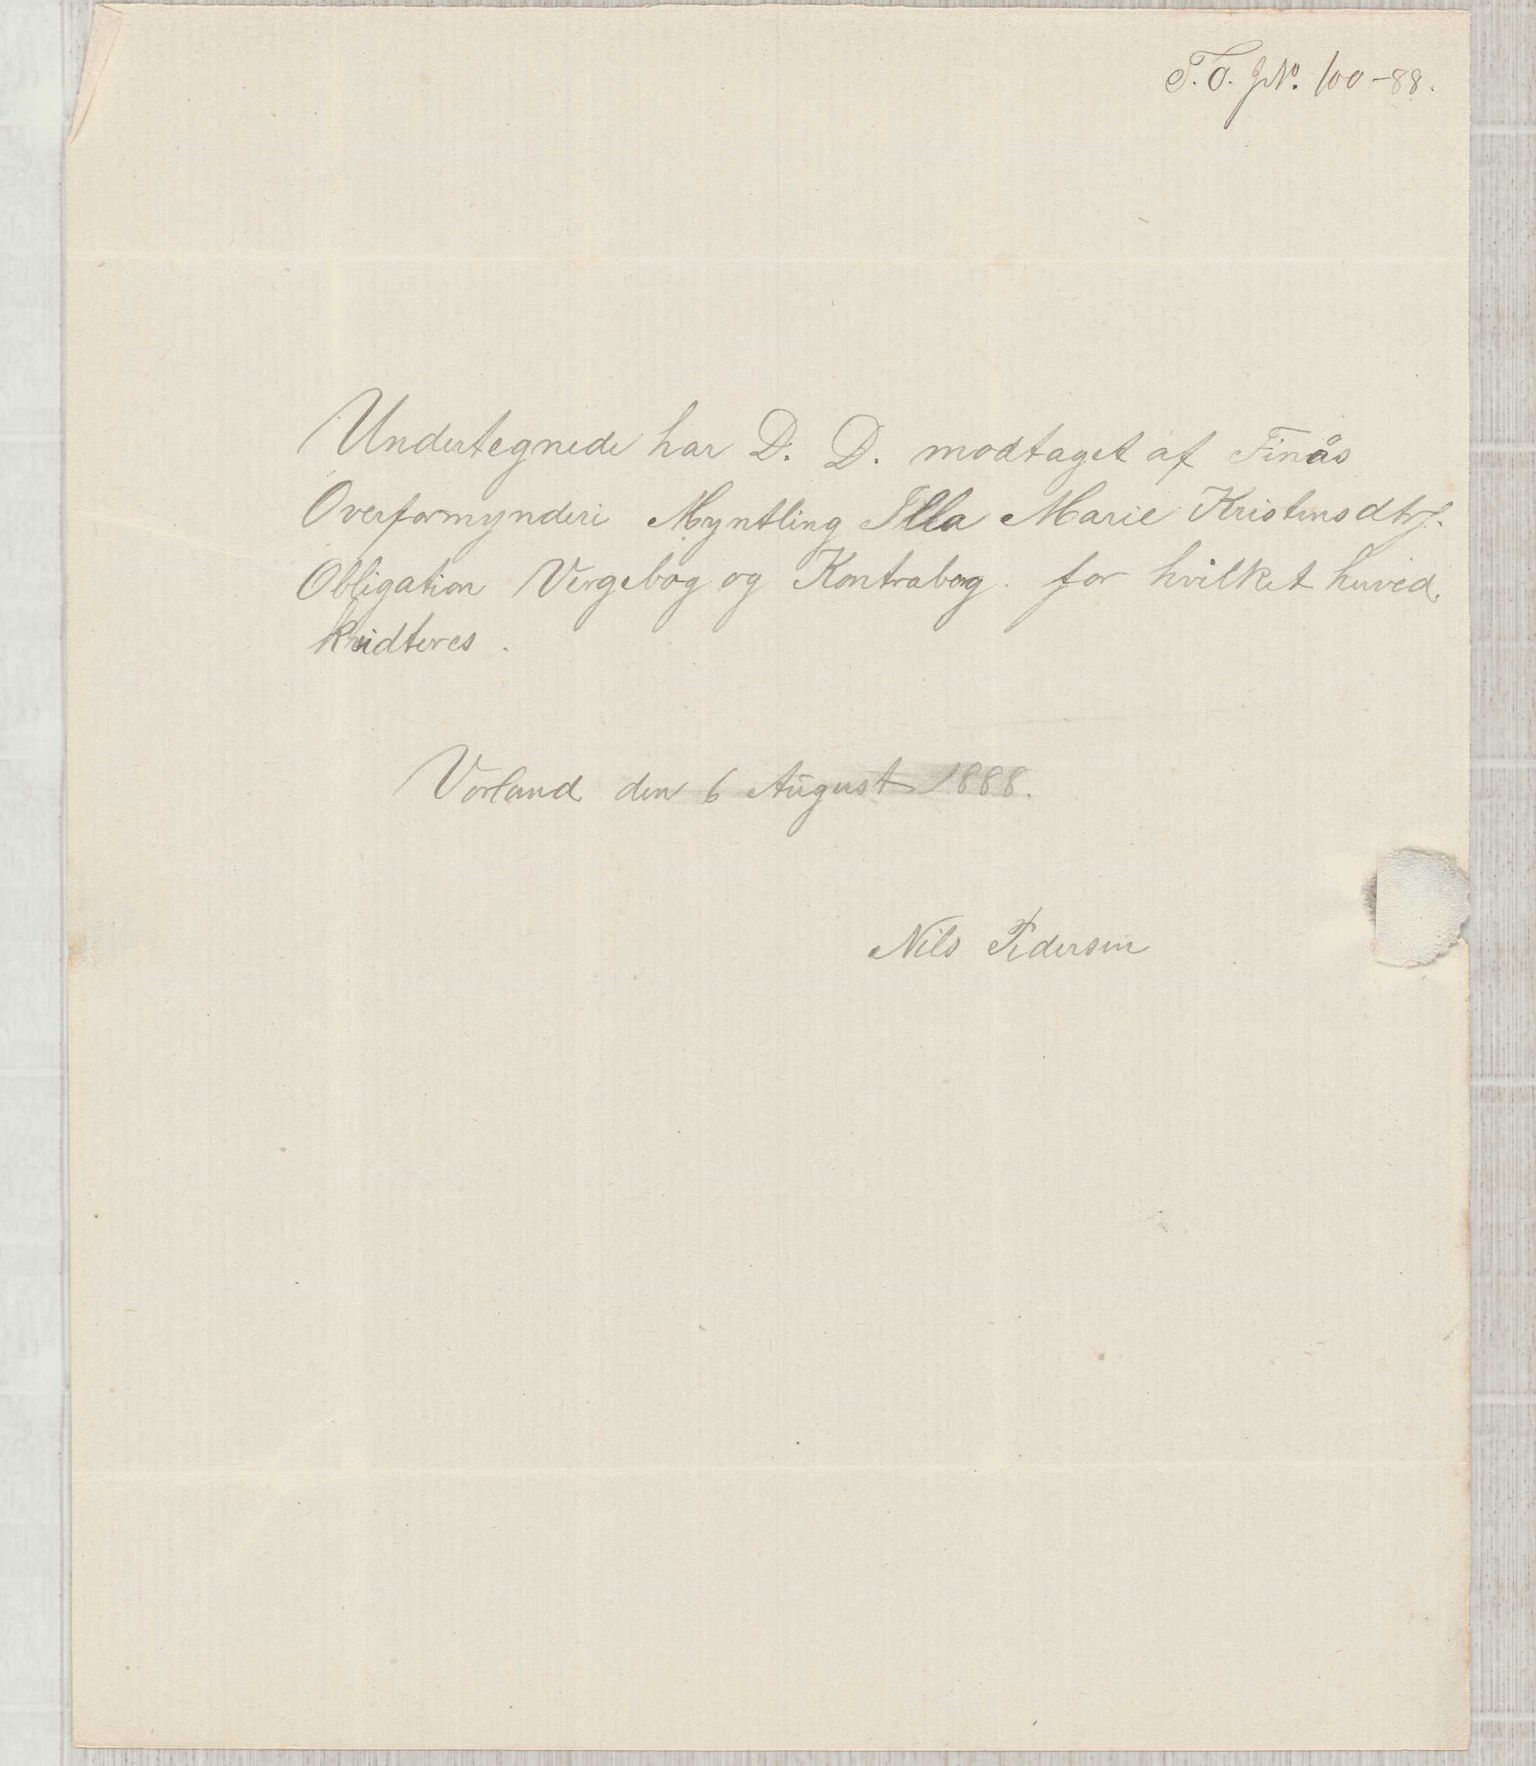 F. O. JN. 100-88.
Undertegnede har D. D. modtaget af Finås
Overformynderi Myntling Illa Marie Kristensdtr.
Obligation Vergebog og Kontrabog. for hvilket herved.
kvidteres.
Vorland den 6 August 1888.
Nils Pedersen